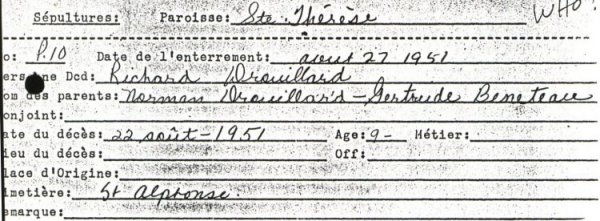 Sépultures: Paroisse: Ste. Thérèse WHO?
o: P.10 Date de l'enterrement: aout 27 1951
ers ne Dcd: Richard Drouillard
om des parents: Norman Drouillard - Gertrude Beneteau
onjoint:
ate du décès: 22 août - 1951 Age: 9- Métier:
ieu du décès: Off:
lace d'Origine:
imetière: St Alphonse
emarque: